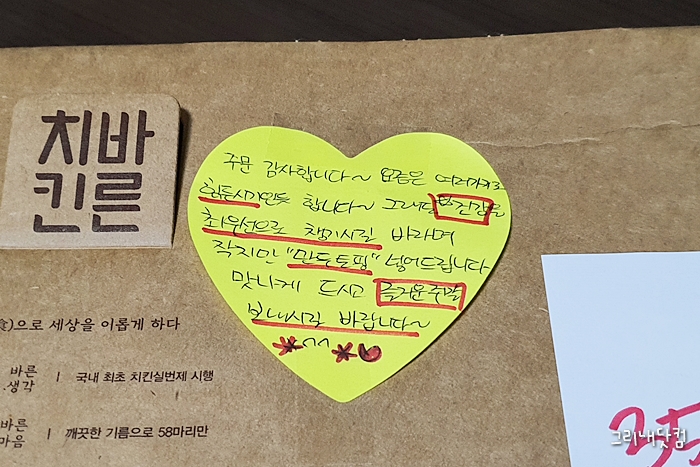 치바
킨른
주문 감사합니다~ 요즘은 여러가지로
힘든시기인듯 합니다~ 그래도 건강을
최우선으로 챙기시길 바라며
작지만 "만두토핑" 넣어드립니다
맛나게 드시고 즐거운주말
보내시길 바랍니다~
^^
)으로 세상을 이롭게 하다
바른
생각 | 국내 최초 치킨실번제 시행
바른
마음 | 깨끗한 기름으로 58마리만
그리내닷컴